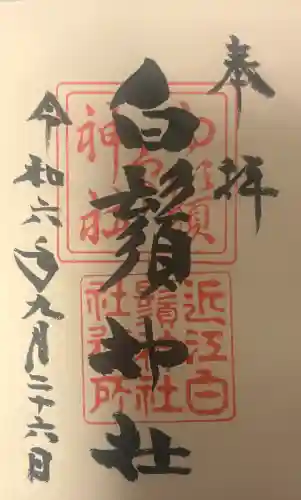 奉拝
白鬚神社
令和六年九月二十六日
白鬚神社
近江白鬚神社社務所